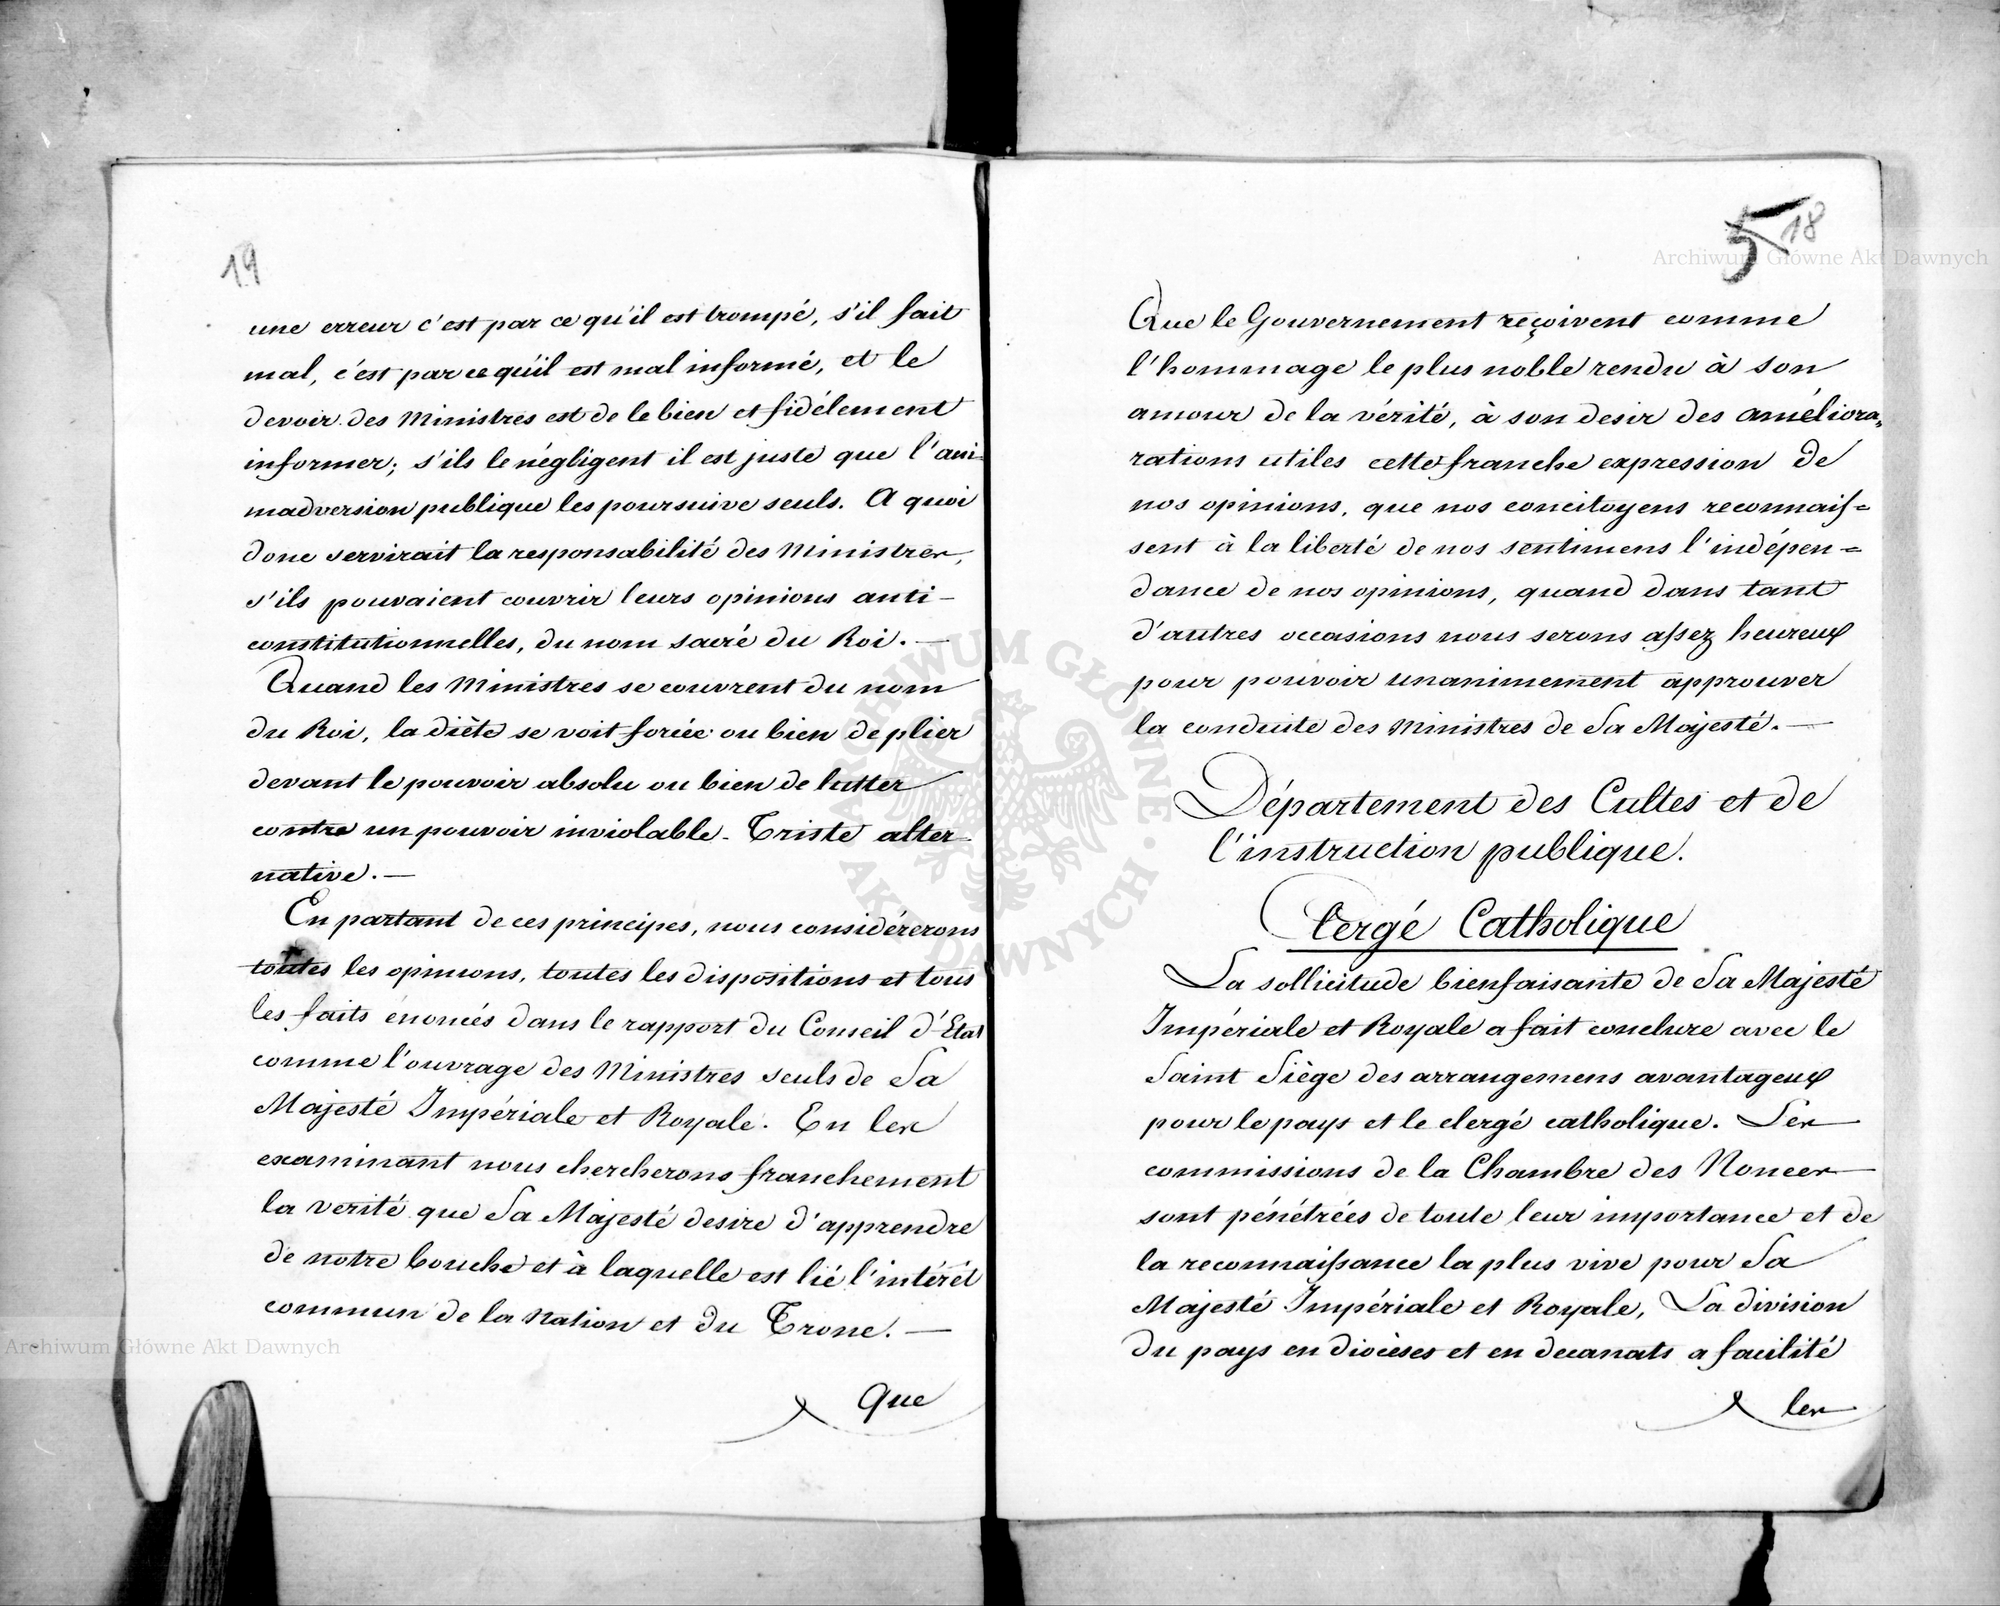 19
une erreur c'est par ce qu'il est trompé, s'il fait
mal, c'est par ce qu'il est mal informé, et le
devoir des Ministres est de le bien et fidélement
informer; s'ils le négligent il est juste que l'ani-
madversion publique les poursuive seuls. A quoi
donc servirait la responsabilité des Ministres,
s'ils pouvaient couvrir leurs opinions anti-
constitutionnelles, du nom sacré du Roi. —
Quand les Ministres se couvrent du nom
du Roi, la diète se voit forcée ou bien de plier
devant le pouvoir absolu ou bien de lutter
contre un pouvoir inviolable. Triste alter-
native. —
En partant de ces principes, nous considérerons
toutes les opinions, toutes les dispositions et tous
les faits énoncés dans le rapport du Conseil d'Etat
comme l'ouvrage des Ministres seuls de Sa
Majesté Impériale et Royale. En les
examinant nous chercherons franchement
la verité que Sa Majesté desire d'apprendre
de notre bouche et à laquelle est lié l'intérêt
commun de la Nation et du Trone. —
Que
5 18
Que le Gouvernement reçoivent comme
l'hommage le plus noble rendu à son
amour de la vérité, à son desir des améliora-
rations utiles cette franche expression de
nos opinions, que nos concitoyens reconnais=
sent à la liberté de nos sentimens l'indépen=
dance de nos opinions, quand dans tant
d'autres occasions nous serons assez heureux
pour pouvoir unanimement approuver
la conduite des Ministres de Sa Majesté. —
Département des Cultes et de
l'instruction publique.
Clergé Catholique
La sollicitude bienfaisante de Sa Majesté
Impériale et Royale a fait conclure avec le
Saint Siège des arrangemens avantageux
pour le pays et le clergé catholique. Les
commissions de la Chambre des Nonces
sont pénétrées de toute leur importance et de
la reconnaissance la plus vive pour Sa
Majesté Impériale et Royale, La division
du pays en diocèses et en decanats a facilité
les
Archiwum Główne Akt Dawnych
Archiwum Główne Akt Dawnych
ARCHIWUM GŁÓWNE AKT DAWNYCH